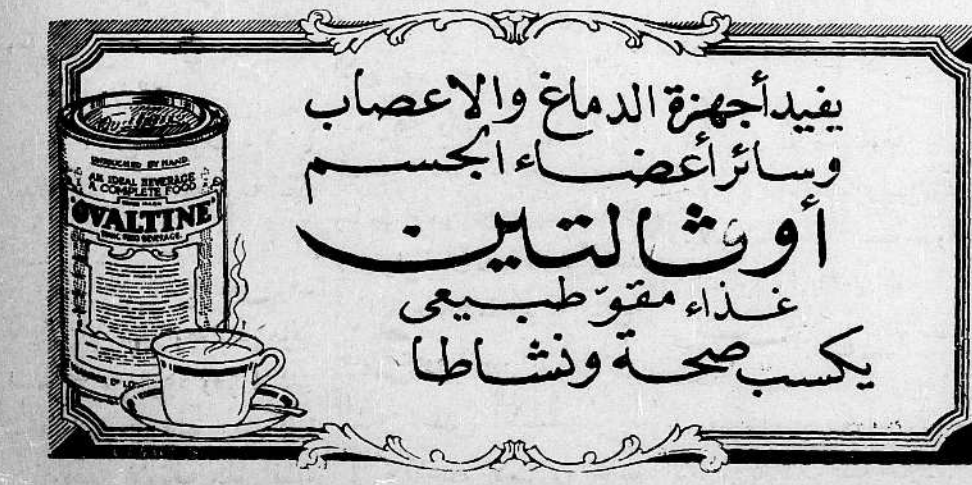 يفيد أجهزة الدماغ والاعصاب
وسائر أعضاء الجسم
أوڤالتين
غذاء مقوّ طبيعى
يكسب صحة ونشاطا
UNTOUCHED BY HAND
AN IDEAL BEVERAGE
A COMPLETE FOOD
TRADE MARK
OVALTINE
TONIC FOOD BEVERAGE